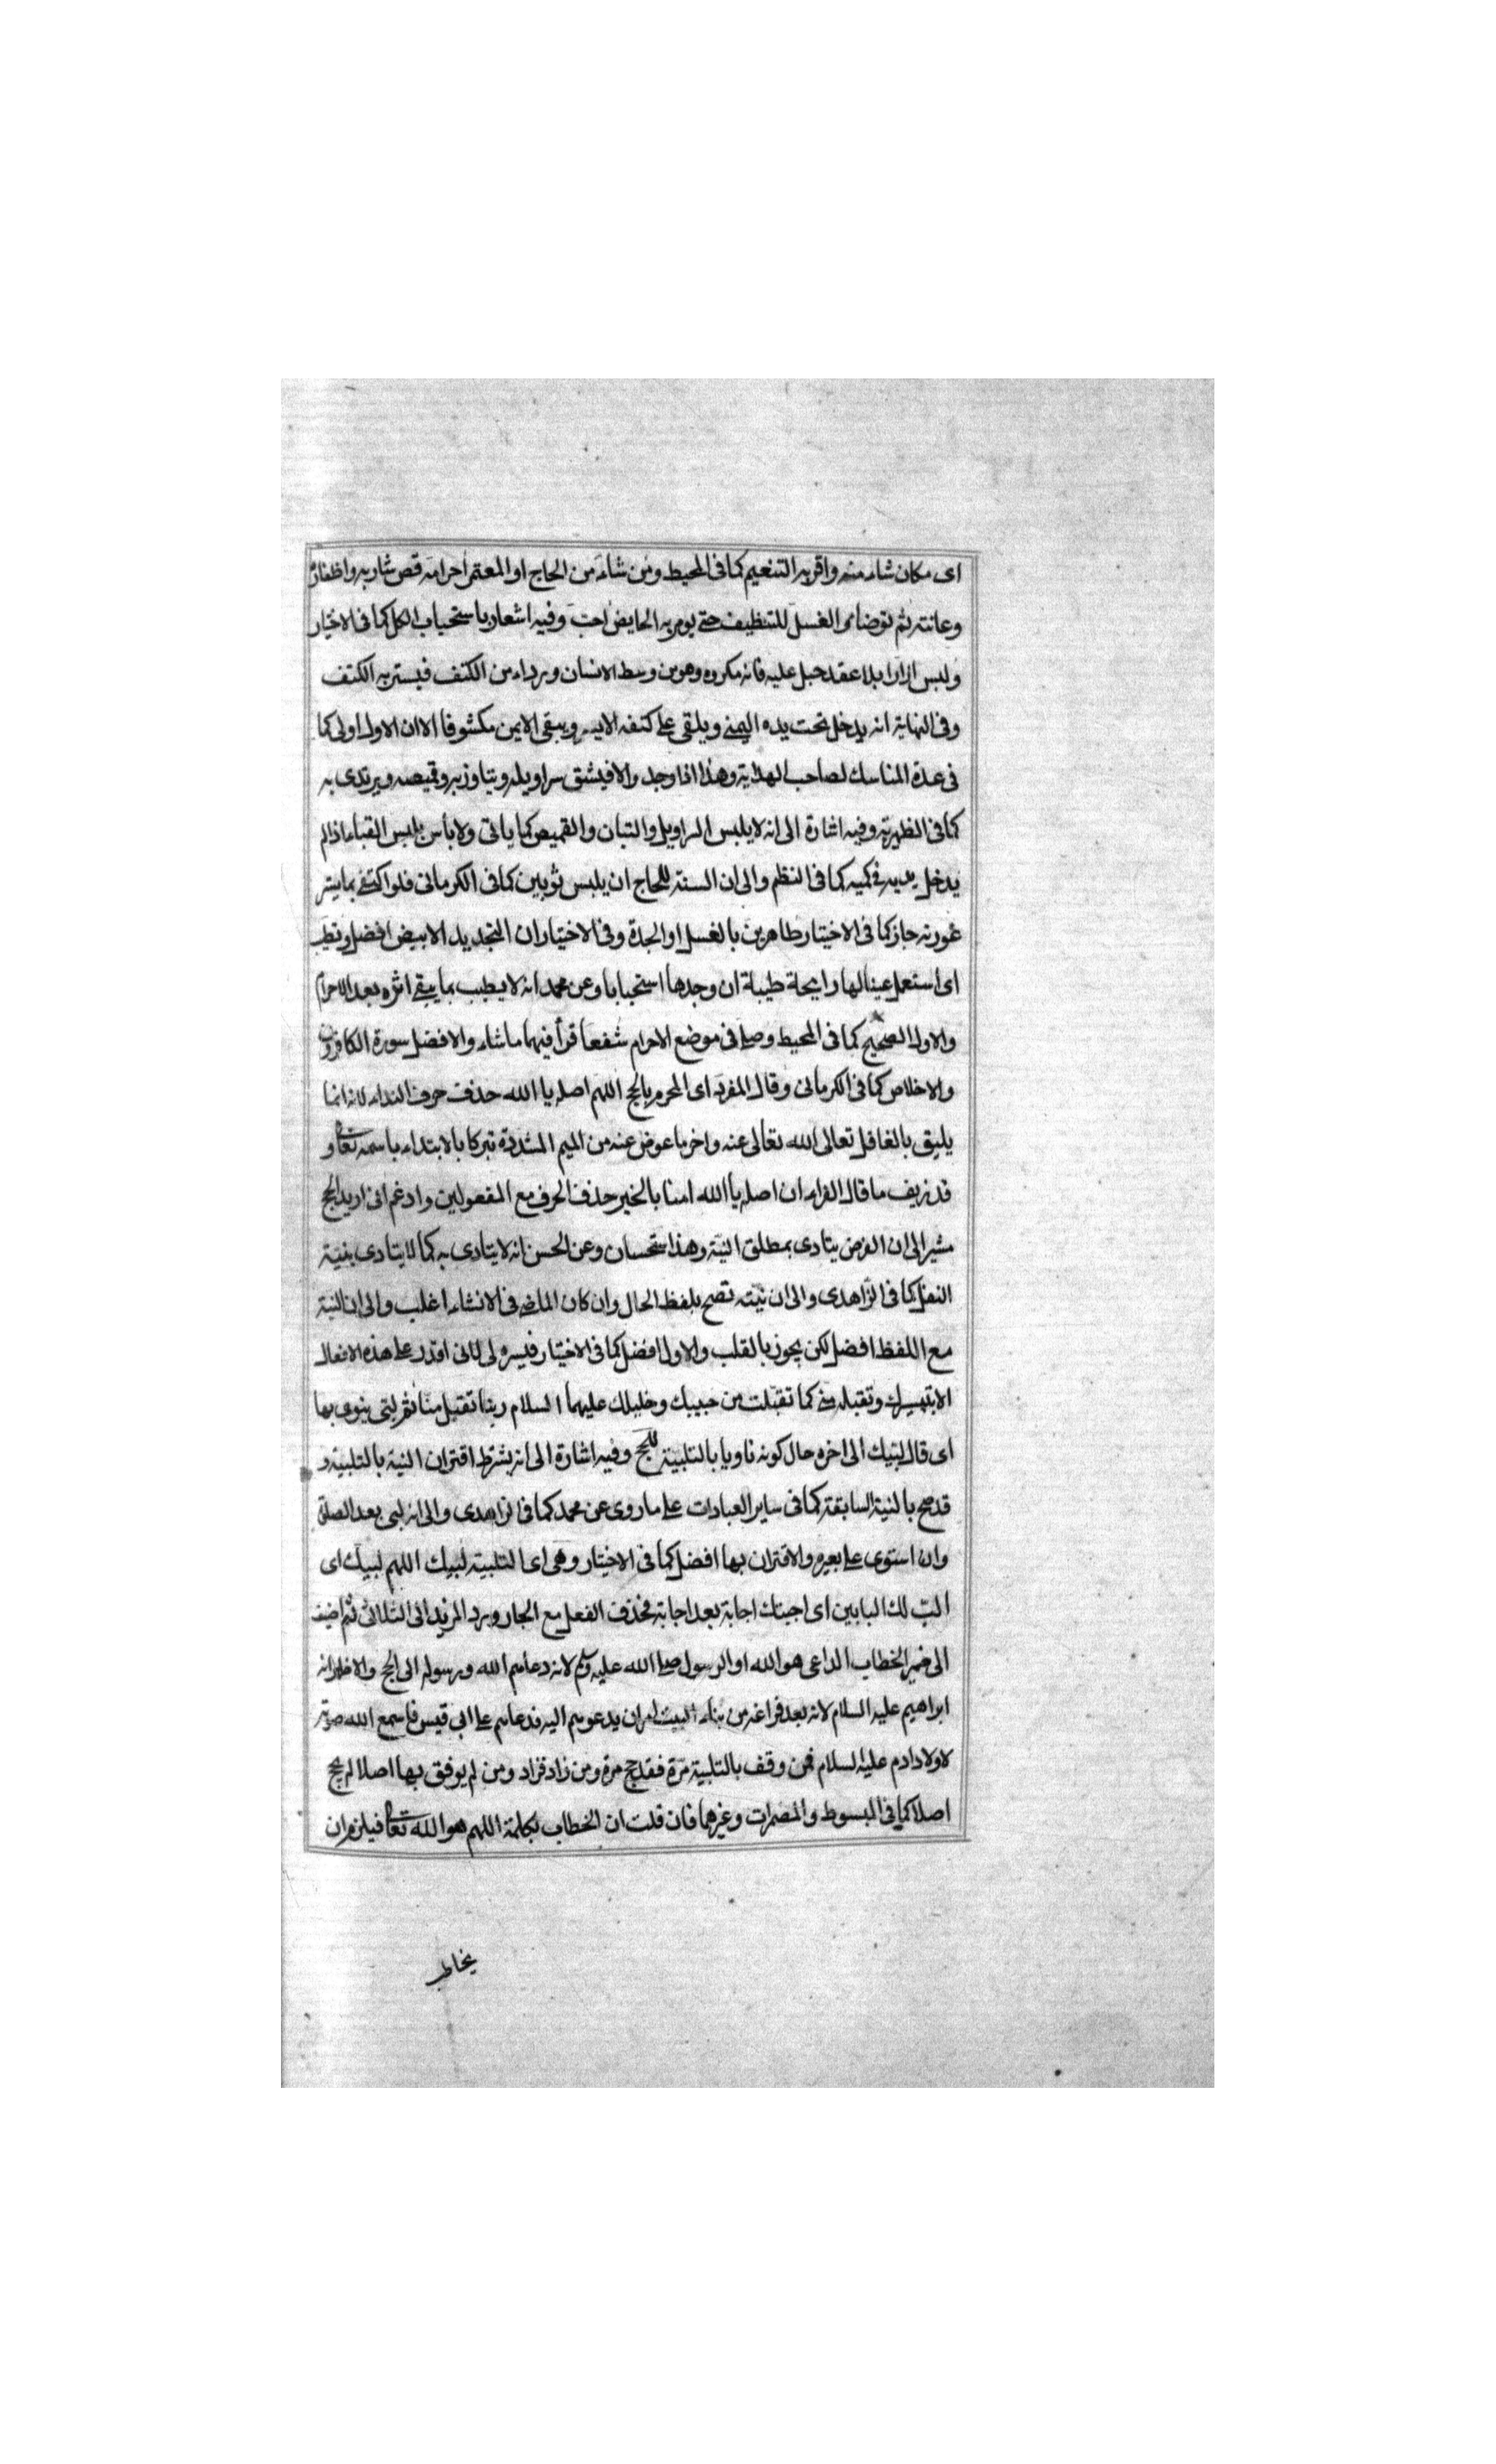 اى مكان شاء منه واقربه التنعيم كما فى المحيط ومن شاء من الحاج او المعتمر احرامه قص شاربه واظفاره
وعانته ثم توضا والغسل للتنظيف حتى يومر به الحايض احب وفيه اشعار باستحباب الكل كما فى الاختيار
ولبس ازارا بلا عقد حبل عليه فانه مكروه وهو من وسط الانسان ورداء من الكتف فيستر به الكتف
وفى النهاية انه يدخل تحت يده اليمنى ويلقى على كتفه الايسر ويبقى الايمن مكشوفا الا ان الاول اولى كما
فى عدة المناسك لصاحب الهداية وهذا اذا وجد والا فيشق سراويله ويتاوزر به وقميصه ويرتدى به
كما فى الظهيرية وفيه اشارة الى انه لا يلبس السراويل والتبان والقميص كما ياتى ولا باس بلبس القباء اذا لم
يدخل يديه فى كميه كما فى النظم والى ان السنة للحاج ان يلبس ثوبين كما فى الكرمانى فلو اكتفى بما يستر
عورته جاز كما فى الاختيار طاهرين بالغسل او الجدة وفى الاختيار ان التجديد الابيض افضل وتطيب
اى استعمل عينا لها رايحة طيبة ان وجدها استحبابا وعن محمد انه لا يطيب بما يبقى اثره بعد الاحرام
والاول الصحيح كما فى المحيط وصلى فى موضع الاحرام شفعا قرأ فيهما ما شاء والافضل سورة الكافرون
والاخلاص كما فى الكرمانى وقال المفرد اى المحرم بالحج اللهم اصله يا الله حذف حرف النداء لانه انما
يليق بالغافل تعالى الله تعالى عنه واخر ما عوض عنه من الميم المشددة تبركا بالابتداء باسمه تعالى و
قد زيف ما قال الفراء ان اصله يا الله امنا بالخير حذف الحرف مع المفعولين وادغم انى اريد الحج
مشير الى ان الفرض يتادى بمطلق النية وهذا استحسان وعن الحسن انه لا يتادى به كما لا يتادى بنية
النفل كما فى الزاهدى والى ان نيته تصح بلفظ الحال وان كان الماضى فى الانشاء اغلب والى ان النية
مع اللفظ افضل لكن يجوز بالقلب والاول افضل كما فى الاختيار فيسره لى لانى اقدر على هذه الافعال
الا بتيسيرك وتقبله منى كما تقبلت من حبيبك وخليلك عليهما السلام ربنا تقبل منا ثم لبى ينوى بها
اى قال لبيك الى اخره حال كونه ناويا بالتلبية للحج وفيه اشارة الى انه يشترط اقتران النية بالتلبية و
قد صح بالنية السابقة كما فى ساير العبادات على ما روى عن محمد كما فى الزاهدى والى انه لبى بعد الصلوة
وان استوى على بعيره والاقتران بها افضل كما فى الاختيار وهى اى التلبية لبيك اللهم لبيك اى
الب لك البابين اى اجبتك اجابة بعد اجابة فحذف الفعل مع الجار ورد المزيد الى الثلاثى ثم اضيف
الى ضمير الخطاب الداعى هو الله او الرسول صلى الله عليه وسلم لانه دعاهم الله ورسوله الى الحج والاظهر انه
ابراهيم عليه السلام لانه بعد فراغه من بناء البيت امر ان يدعوهم اليه فدعاهم على ابى قبيس فاسمع الله صوته
لاولاد ادم عليه السلام فمن وقف بالتلبية مرة فقد حج مرة ومن زاد فزاد ومن لم يوفق بها اصلا لم يحج
اصلا كما فى المبسوط والمضمرات وغيرهما فان قلت ان الخطاب بكلمة اللهم هو الله تعالى فيلزم ان
يخاطب